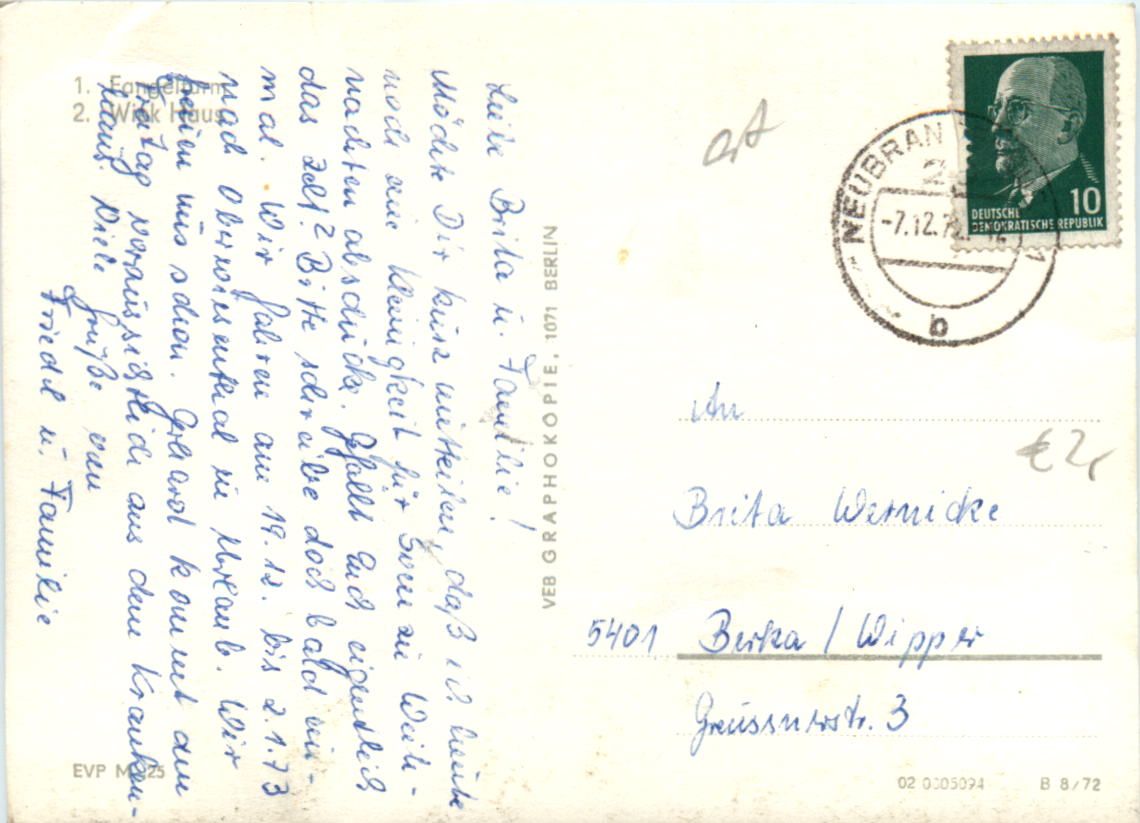 1. Fangelturm
2. Wiek Haus
Liebe Brita u. Familie!
Möchte Dir kurz mitteilen, daß ich heute
noch eine Kleinigkeit für Sven zu Weih-
nachten abschicke. Gefällt Euch eigentlich
das Zelt? Bitte schreibe doch bald ein-
mal. Wir fahren am 19.12. bis 2.1.73
nach Oberwiesenthal in Urlaub. Wir
freuen uns schon. Gerhard kommt am
Freitag voraussichtlich aus dem Kranken-
haus. Viele Grüße von
Friedel u. Familie
EVP M 0,25
VEB GRAPHOKOPIE, 1071 BERLIN
NEUBRAN
-7.12.72
b
10
DEUTSCHE
DEMOKRATISCHE REPUBLIK
An
€ 2,
Brita Wernicke
5401 Berka / Wipper
Greussnerstr. 3
02 0305094 B 8/72